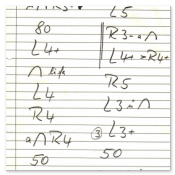 80
L4+
∩ life
L4
R4
a∩R4
50
L5
R3-a∩
L4+>R4+
R5
L3 i∩
③ L3+
50